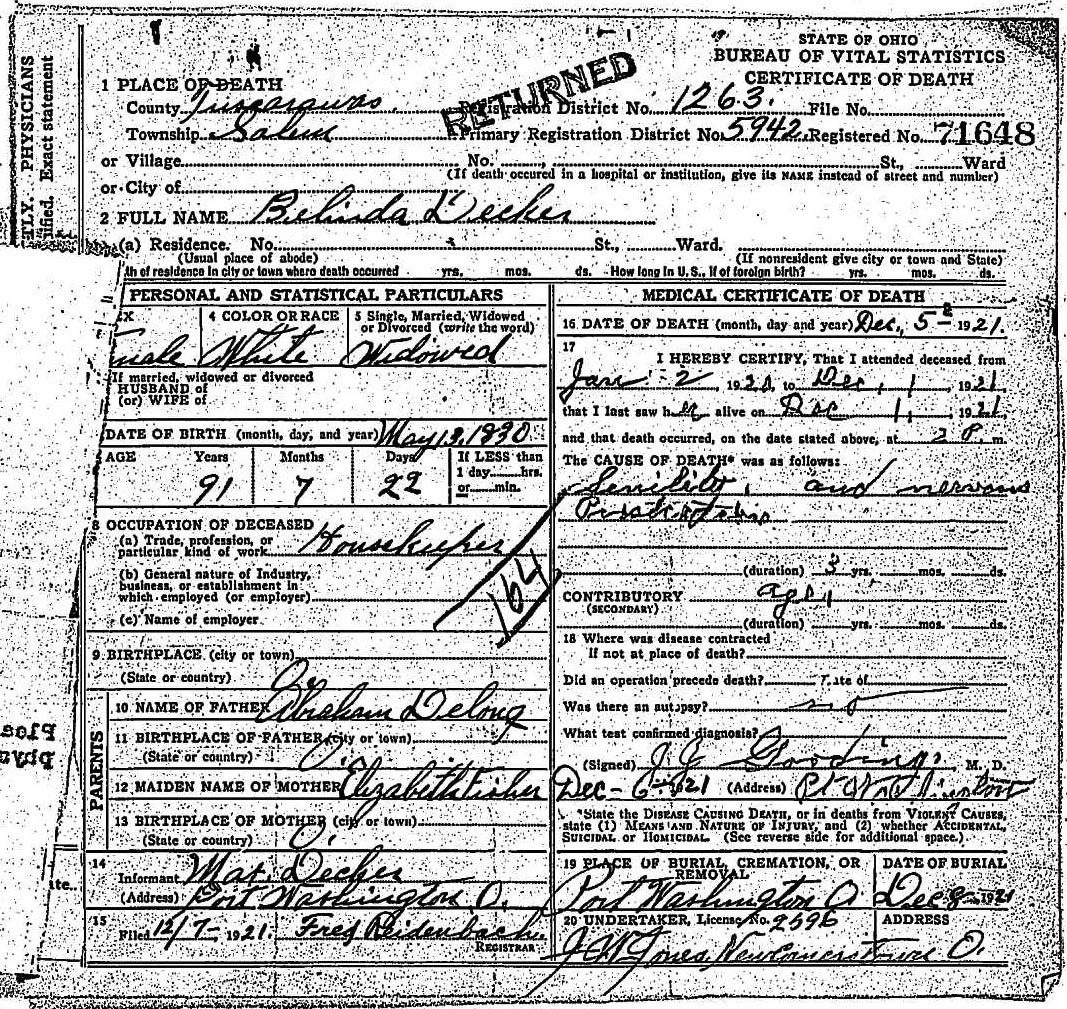 STATE OF OHIO
BUREAU OF VITAL STATISTICS
CERTIFICATE OF DEATH
RETURNED
PHYSICIANS
Exact statement
1 PLACE OF DEATH
County Tuscarawas Registration District No. 1263. File No.
Township Salem Primary Registration District No. 5942 Registered No. 71648
or Village No. St., Ward
(If death occured in a hospital or institution, give its NAME instead of street and number)
or City of
2 FULL NAME Belinda Decker
(a) Residence. No. St., Ward.
(Usual place of abode) (If nonresident give city or town and State)
th of residence in city or town where death occurred yrs. mos. ds. How long in U.S., if of foreign birth? yrs. mos. ds.
PERSONAL AND STATISTICAL PARTICULARS
EX 4 COLOR OR RACE 5 Single, Married, Widowed
or Divorced (write the word)
male White Widowed
If married, widowed or divorced
HUSBAND of
(or) WIFE of
DATE OF BIRTH (month, day, and year) May 13, 1830
AGE Years Months Days If LESS than
1 day hrs.
or min.
91 7 22
8 OCCUPATION OF DECEASED
(a) Trade, profession, or
particular kind of work Housekeeper
(b) General nature of Industry,
business, or establishment in
which employed (or employer)
(c) Name of employer
164
9 BIRTHPLACE (city or town)
(State or country) O.
PARENTS
10 NAME OF FATHER Abraham Delong
11 BIRTHPLACE OF FATHER (city or town)
(State or country) O.
12 MAIDEN NAME OF MOTHER Elizabeth Fisher
13 BIRTHPLACE OF MOTHER (city or town)
(State or country) O.
14
Informant Mat. Decker
(Address) Port Washington O.
15
Filed 12/7- 1921. Fred Reidenbacher
REGISTRAR
MEDICAL CERTIFICATE OF DEATH
16 DATE OF DEATH (month, day and year) Dec., 5 1921.
17
I HEREBY CERTIFY, That I attended deceased from
Jan 2, 1920, to Dec, 1, 1921
that I last saw her alive on Dec 1, 1921,
and that death occurred, on the date stated above, at 2 P. m.
The CAUSE OF DEATH* was as follows:
Senility, and nervous
Prostration
(duration) 3 yrs. mos. ds.
CONTRIBUTORY age,
(SECONDARY)
(duration) yrs. mos. ds.
18 Where was disease contracted
If not at place of death?
Did an operation precede death? Date of
Was there an autopsy? no
What test confirmed diagnosis?
(Signed) J. G. Gooding, M. D.
Dec - 6 - 1921 (Address)
*State the DISEASE CAUSING DEATH, or in deaths from VIOLENT CAUSES,
state (1) MEANS AND NATURE OF INJURY, and (2) whether ACCIDENTAL,
SUICIDAL or HOMICIDAL. (See reverse side for additional space.)
19 PLACE OF BURIAL, CREMATION, OR
REMOVAL
DATE OF BURIAL
Port Washington O Dec 8 1921
20 UNDERTAKER, License No. 2596 ADDRESS
J. W. Jones, Newcomerstown O.